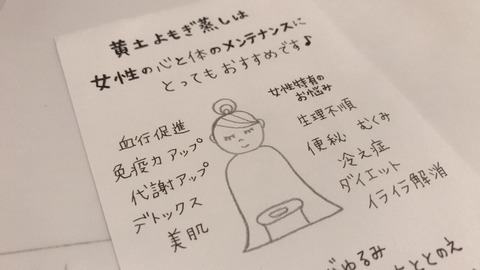 黄土よもぎ蒸しは
女性の心と体のメンテナンスに
とってもおすすめです♪
血行促進
免疫力アップ
代謝アップ
デトックス
美肌
女性特有の
お悩み
生理不順
便秘 むくみ
冷え症
ダイエット
イライラ解消
ゆるみ
ととのえ